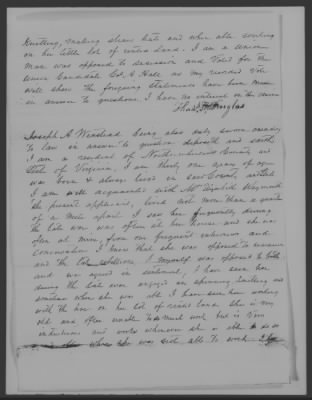 Knitting, making straw hats and when able working
on her little lot of rented land. I am a Union
man was opposed to secession and voted for the
Union Candidate Col. A Hall as my recorded vote
will show the forgoing statements have been made
in answer to questions I have no interest in the
Thos. Douglas
Joseph A being also duly sworn according
to law in answer to question deposeth and saith,
I am a resident of Northumberland County and
State of Virginia, I am thirty one years of age
was born & always lived in said County
I am well acquainted with Mrs Elizabeth
the present applicant, lived not more than a quarter
of a mile apart I saw her frequently during
the late war was often at her house and she
often at mine, from our frequent interviews and
conversation I know that she was opposed to secession
and the late rebellion, I myself was opposed to both
and we agreed in sentiment, I have seen her
during the late war engaged in spinning, knitting and
sometimes when she was able I have seen her working
with the hoe on her lot of rented land. She is very
old and often unable to do much work but is very
industrious and works whenever she is able to do so
able to work